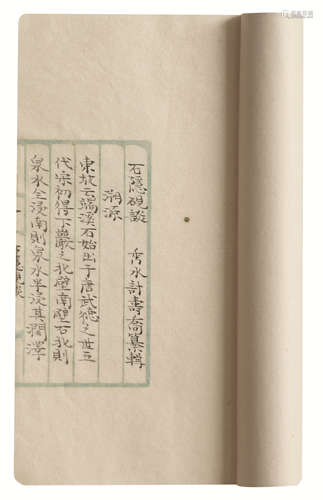 石隱硯談　秀水計壽喬纂輯
溯源
東坡云端溪石始出于唐武德之世五
代宋初得下巖之北壁南壁石北則
泉水全浸南則泉水半浸其潤澤